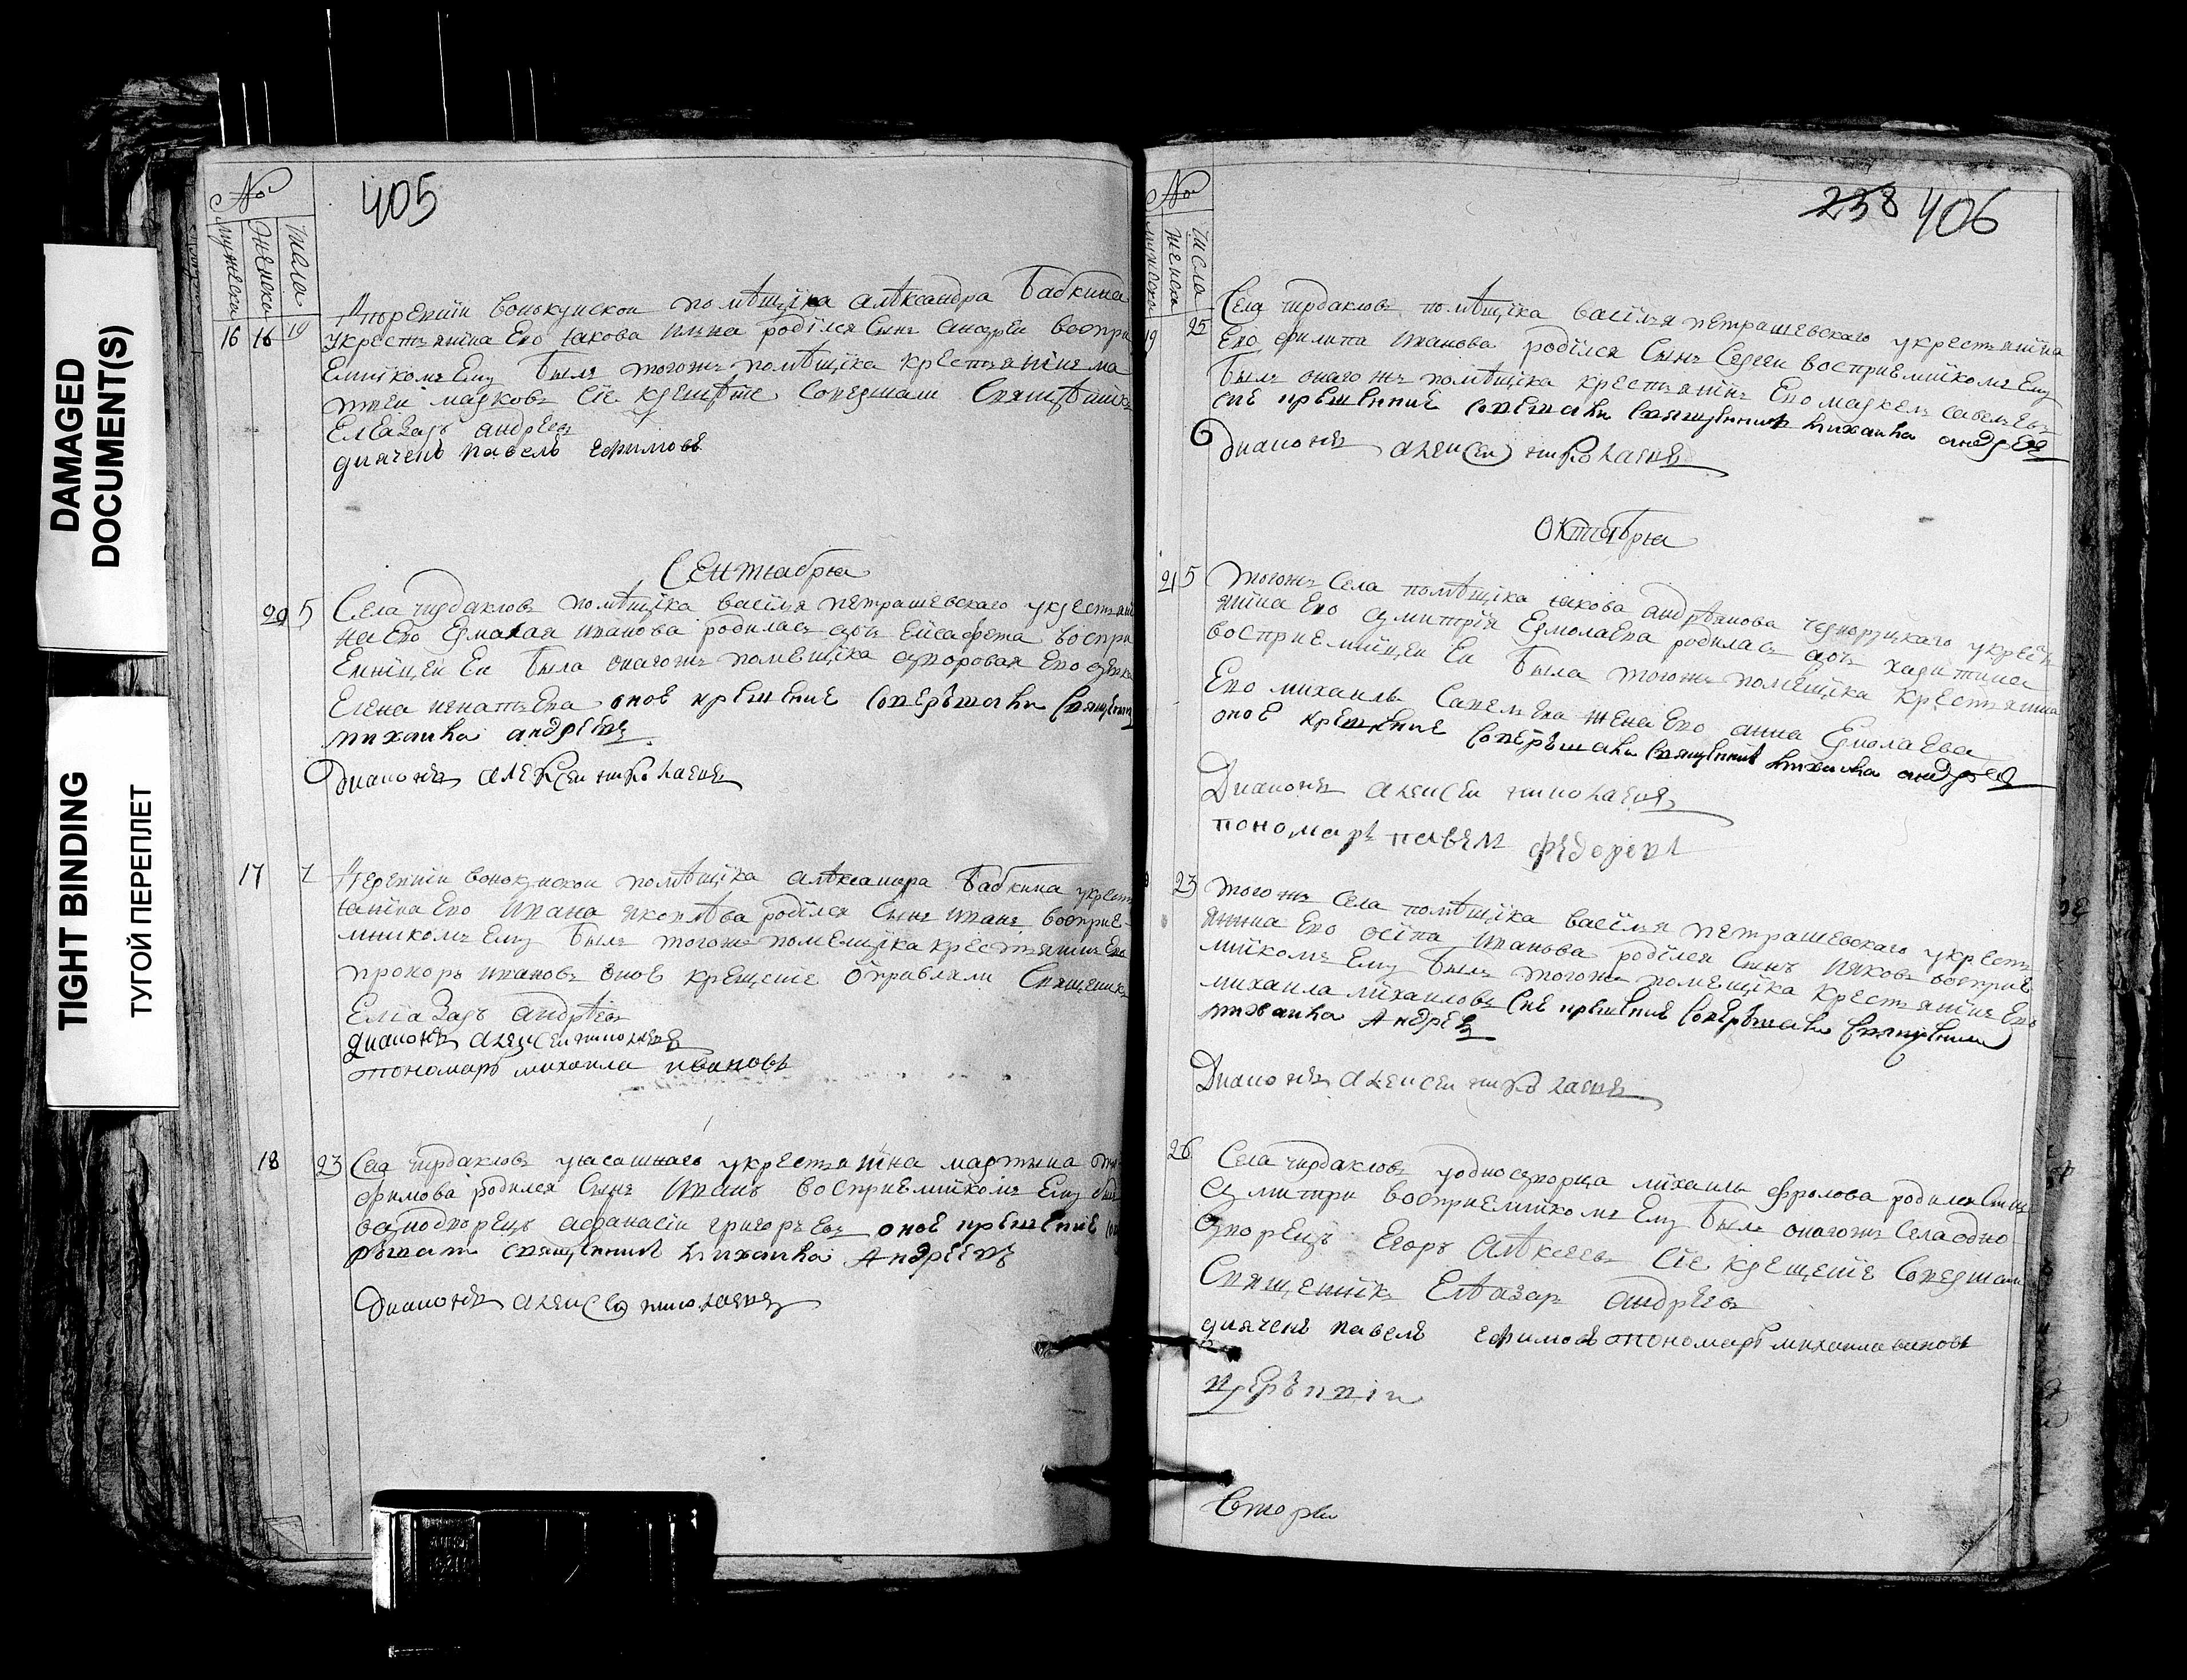 DAMAGED
DOCUMENT(S)
TIGHT BINDING
ТУГОЙ ПЕРЕПЛЕТ
№
405
мужеска
женска
числа
16 16 19
помѣщика алѣксандра Бабкина
укрестьянина Его Іакова родился Сынъ андреи воспри
Емникомъ Ему былъ тогожъ помѣщика крестьянинъ ма
твеи марковъ Сіе крещеніе Совершали Священникъ
Елеазаръ андреевъ
диячекъ павелъ ефимовъ
Сентября
20 5
Села чирдаклов помѣщика василья петрашевскаго укрестьяни
на Его Ермолая иванова родилась дочь Елисафета воспри
Емницей Ей была онагожъ помещика дворовая Его
Елена игнатьева оное крещение совершали священни
михаила андреевъ
диаконъ алексеи николаевъ
17 7
помѣщика алѣксандра Бабкина укрест
ьянина Его ивана яковлѣва родился Сынъ иванъ восприе
мникомъ Ему былъ тогожъ помещика крестьянинъ Его
прохоръ ивановъ оное крещеніе отправляли Священникъ
Елиазаръ андрѣевъ
диаконъ алексеи николаевъ
пономарь михаила ивановъ
18 23
Села чирдаклов укрестьянина мартына
фимова родился Сынъ иванъ восприемникомъ Ему былъ
однодворецъ афанасіи григорьевъ оное крещение сове
ршали священникъ михаила Андреевъ
диаконъ алексеи николаевъ
№
238 406
мужеска
женска
числа
19 25
Села чирдаклов помѣщика василья петрашевскаго укрестьянина
Его филипа иванова родился Сынъ Сергеи восприемникомъ Ему
былъ онагожъ помѣщика крестьянинъ Его маркелъ савельевъ
сие крещение совершали священникъ михаила андреевъ
диаконъ алексеи николаевъ
Октября
21 5
тогожъ Села помѣщика іакова андрѣянова черноруцкаго укресть
янина Его дмитрія Ермолаева родилась дочь харитина
восприемницеи Еи была тогожъ помещика крестьянина
Его михаилы Савельева жена Его анна Ермолаева
оное крещение совершали священникъ михаила андреевъ
Диаконъ алексеи николаевъ
пономарь павелъ федоровъ
23
тогожъ Села помѣщика василья петрашевскаго укресть
янина Его осипа иванова родился сынъ Иаковъ восприе
мникомъ Ему былъ тогожъ помещика крестьянинъ Его
михаила михаиловъ сие крещение совершали священникъ
михаила Андреевъ
Диаконъ алексеи николаевъ
26
Села чирдаклов уоднодворца михаилы фролова родился Сынъ
дмитри восприемникомъ Ему былъ онагожъ Села одно
дворецъ Егоръ алѣксеевъ Сіе крещеніе Совершали
Священникъ Елѣазаръ андреевъ
диячекъ павелъ ефимовъ пономарь михаила ивановъ